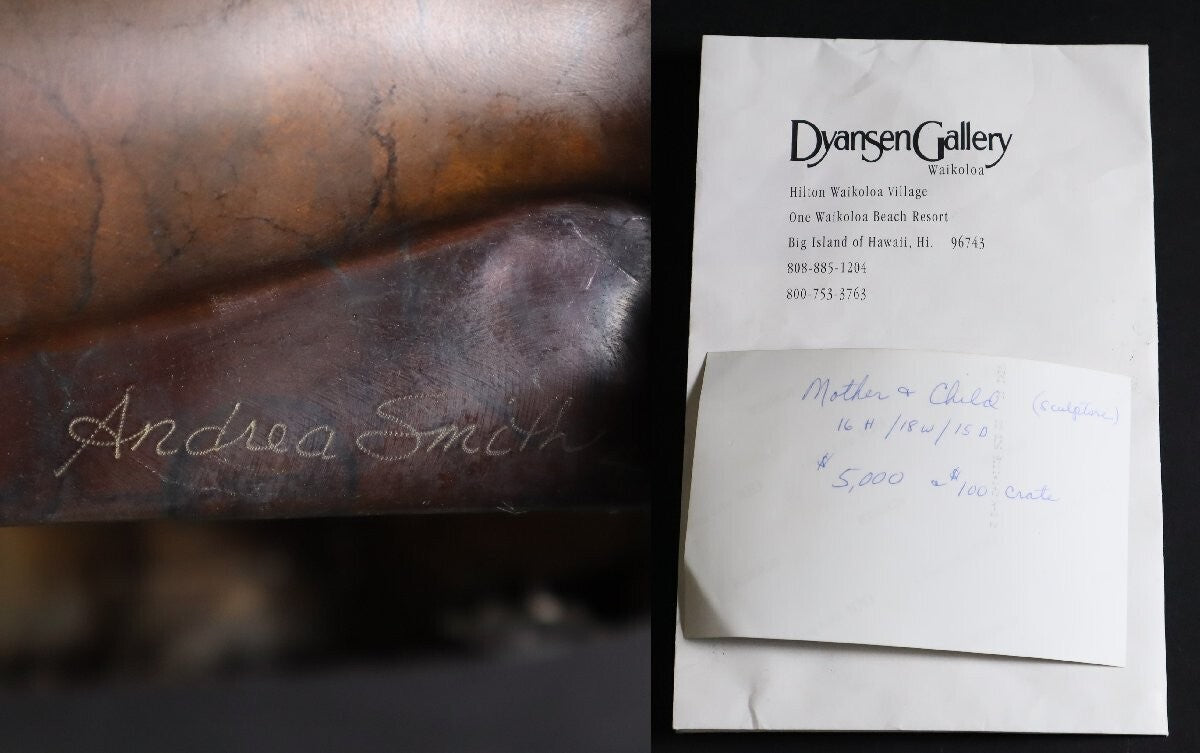 Andrea Smith
Dyansen Gallery
Waikoloa
Hilton Waikoloa Village
One Waikoloa Beach Resort
Big Island of Hawaii, Hi. 96743
808-885-1204
800-753-3763
Mother & Child (sculpture)
16 H / 18 W / 15 D
$5,000 $100 crate